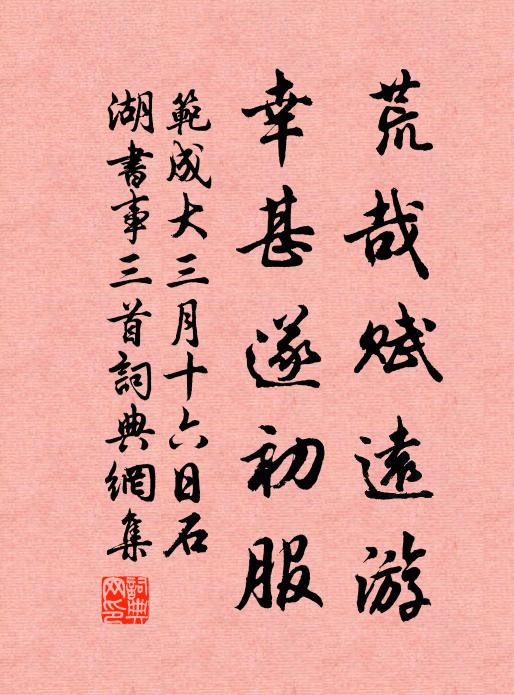 荒哉賦遠游
幸甚遂初服
範成大三月十六日石
湖書事三首詞典網集
詞典网印